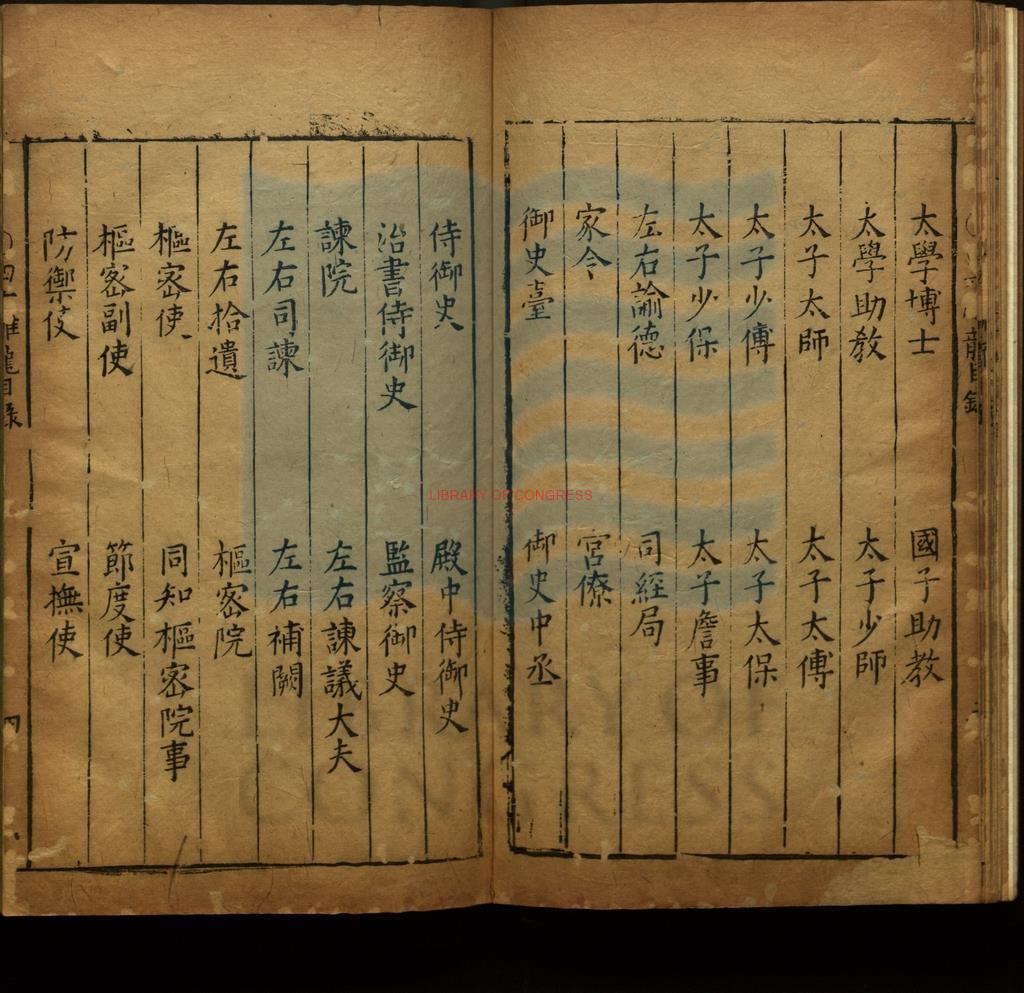 太學博士 國子助教
太學助教 太子少師
太子太師 太子太傅
太子少傅 太子太保
太子少保 太子詹事
左右諭德 司經局
家令 宮僚
御史臺 御史中丞
侍御史 殿中侍御史
治書侍御史 監察御史
諫院 左右諫議大夫
左右司諫 左右補闕
左右拾遺 樞密院
樞密使 同知樞密院事
樞密副使 節度使
防禦使 宣撫使
龍目錄
四六雕龍目錄 四
LIBRARY OF CONGRESS